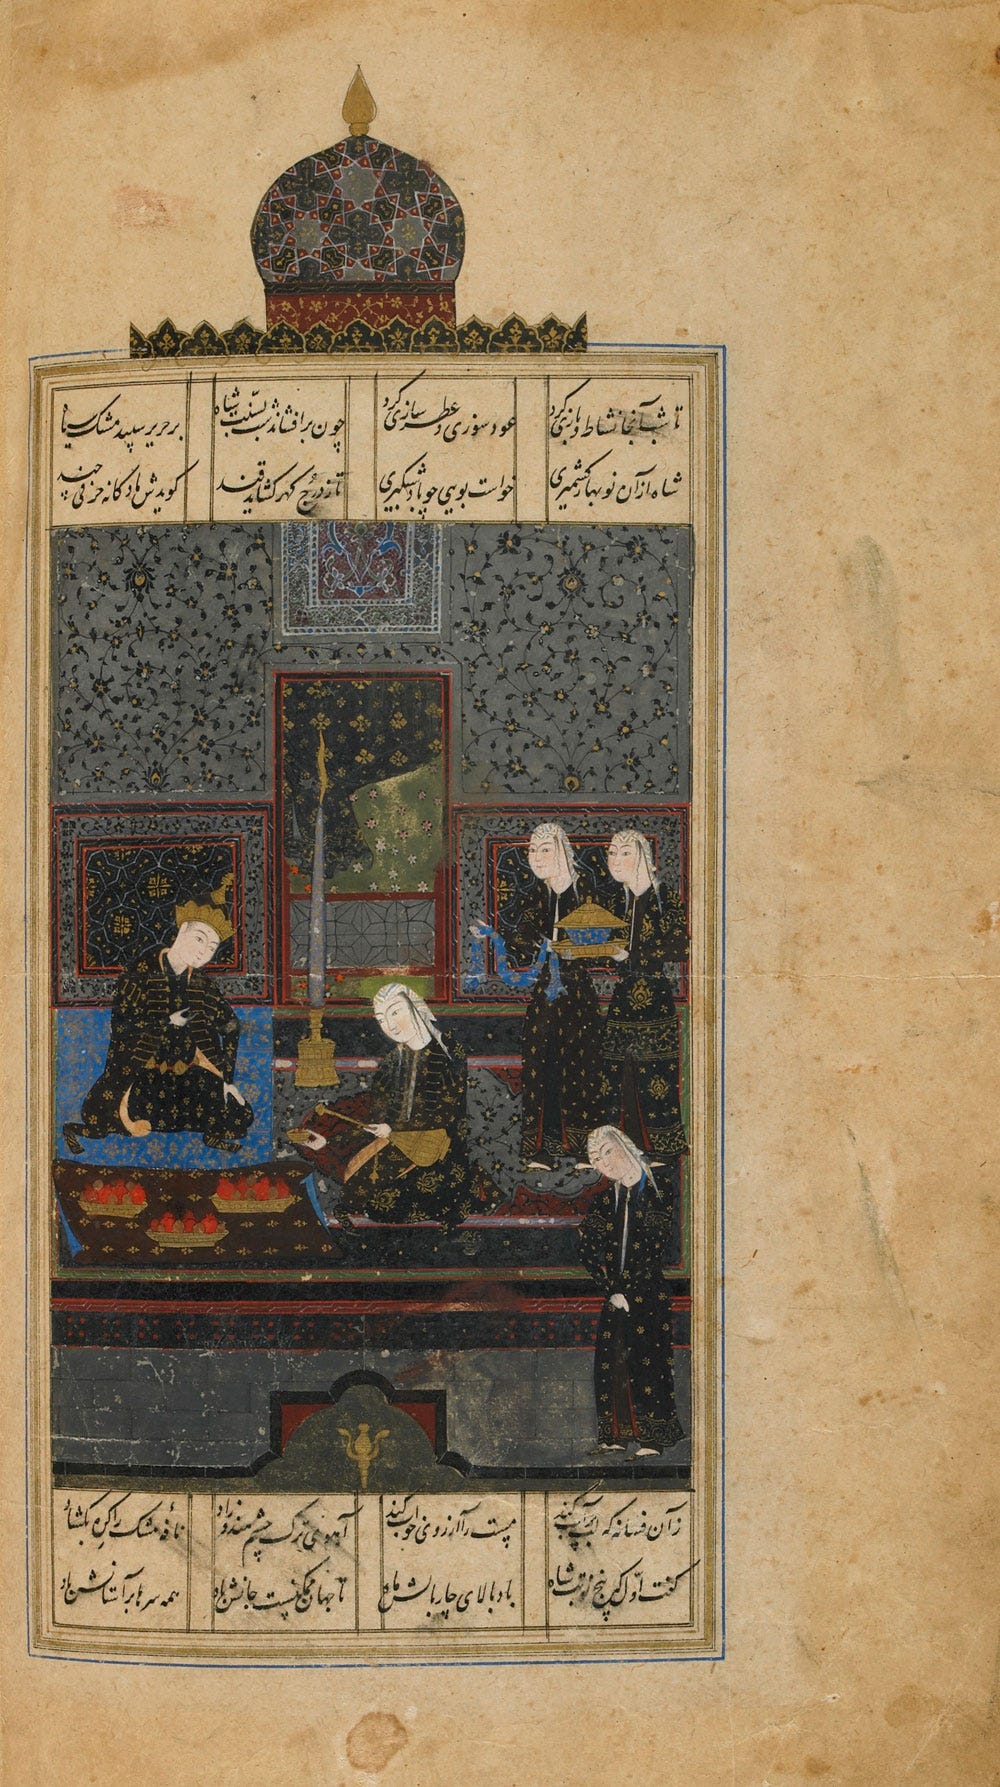 تا شب آنجا نشاط و بازی کرد عودسوزی و عطرسازی کرد چون برافشاند شب بسنّت شاه بر حریر سپید مشک سیاه
شاه ازان نوبهار کشمیری خواست بویی چو باد شبگیری تا ز درج گهر گشاید قند گویدش مادگانه حرفی چند
زان فسانه که لب پر آب کند مست را آرزوی خواب کند آهوی ترک چشم هندوزاد نافهٔ مشک را گره بگشاد
گفت اول که پنج نوبت شاه باد بالای چار بالش ماه تا جهان ممکنست جانش باد همه سرها بر آستانش باد